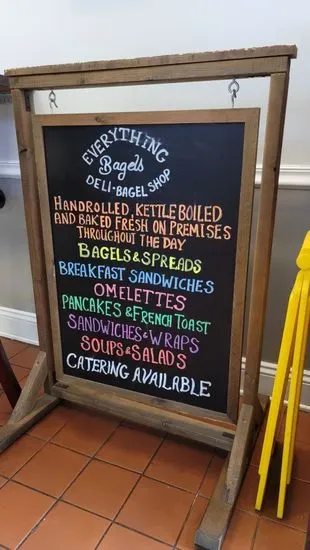 EVERYTHING
Bagels
DELI·BAGEL SHOP
HANDROLLED, KETTLE BOILED
AND BAKED FRESH ON PREMISES
THROUGHOUT THE DAY
BAGELS & SPREADS
BREAKFAST SANDWICHES
OMELETTES
PANCAKES & FRENCH TOAST
SANDWICHES & WRAPS
SOUPS & SALADS
CATERING AVAILABLE